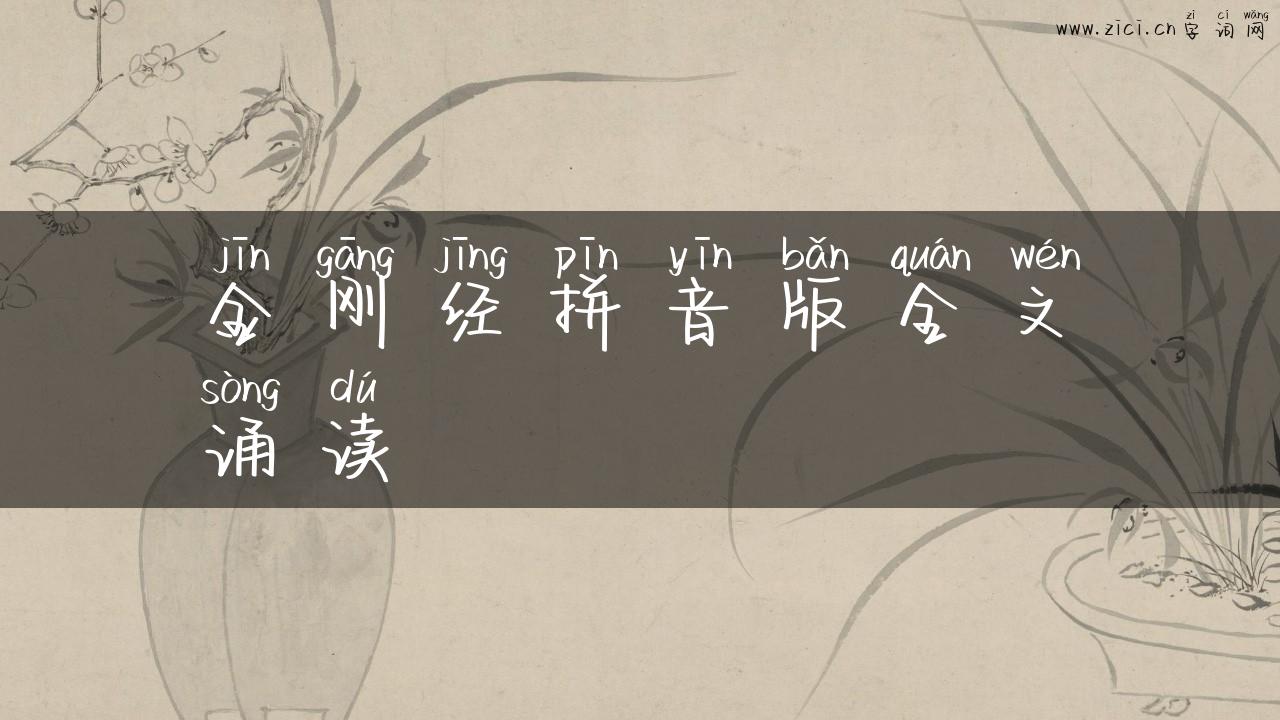 zì cí wǎng
www.zici.cn 字词网
jīn gāng jīng pīn yīn bǎn quán wén
金刚经拼音版全文
sòng dú
诵读